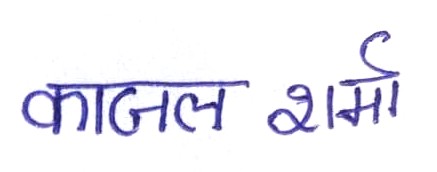 काजल शर्मा